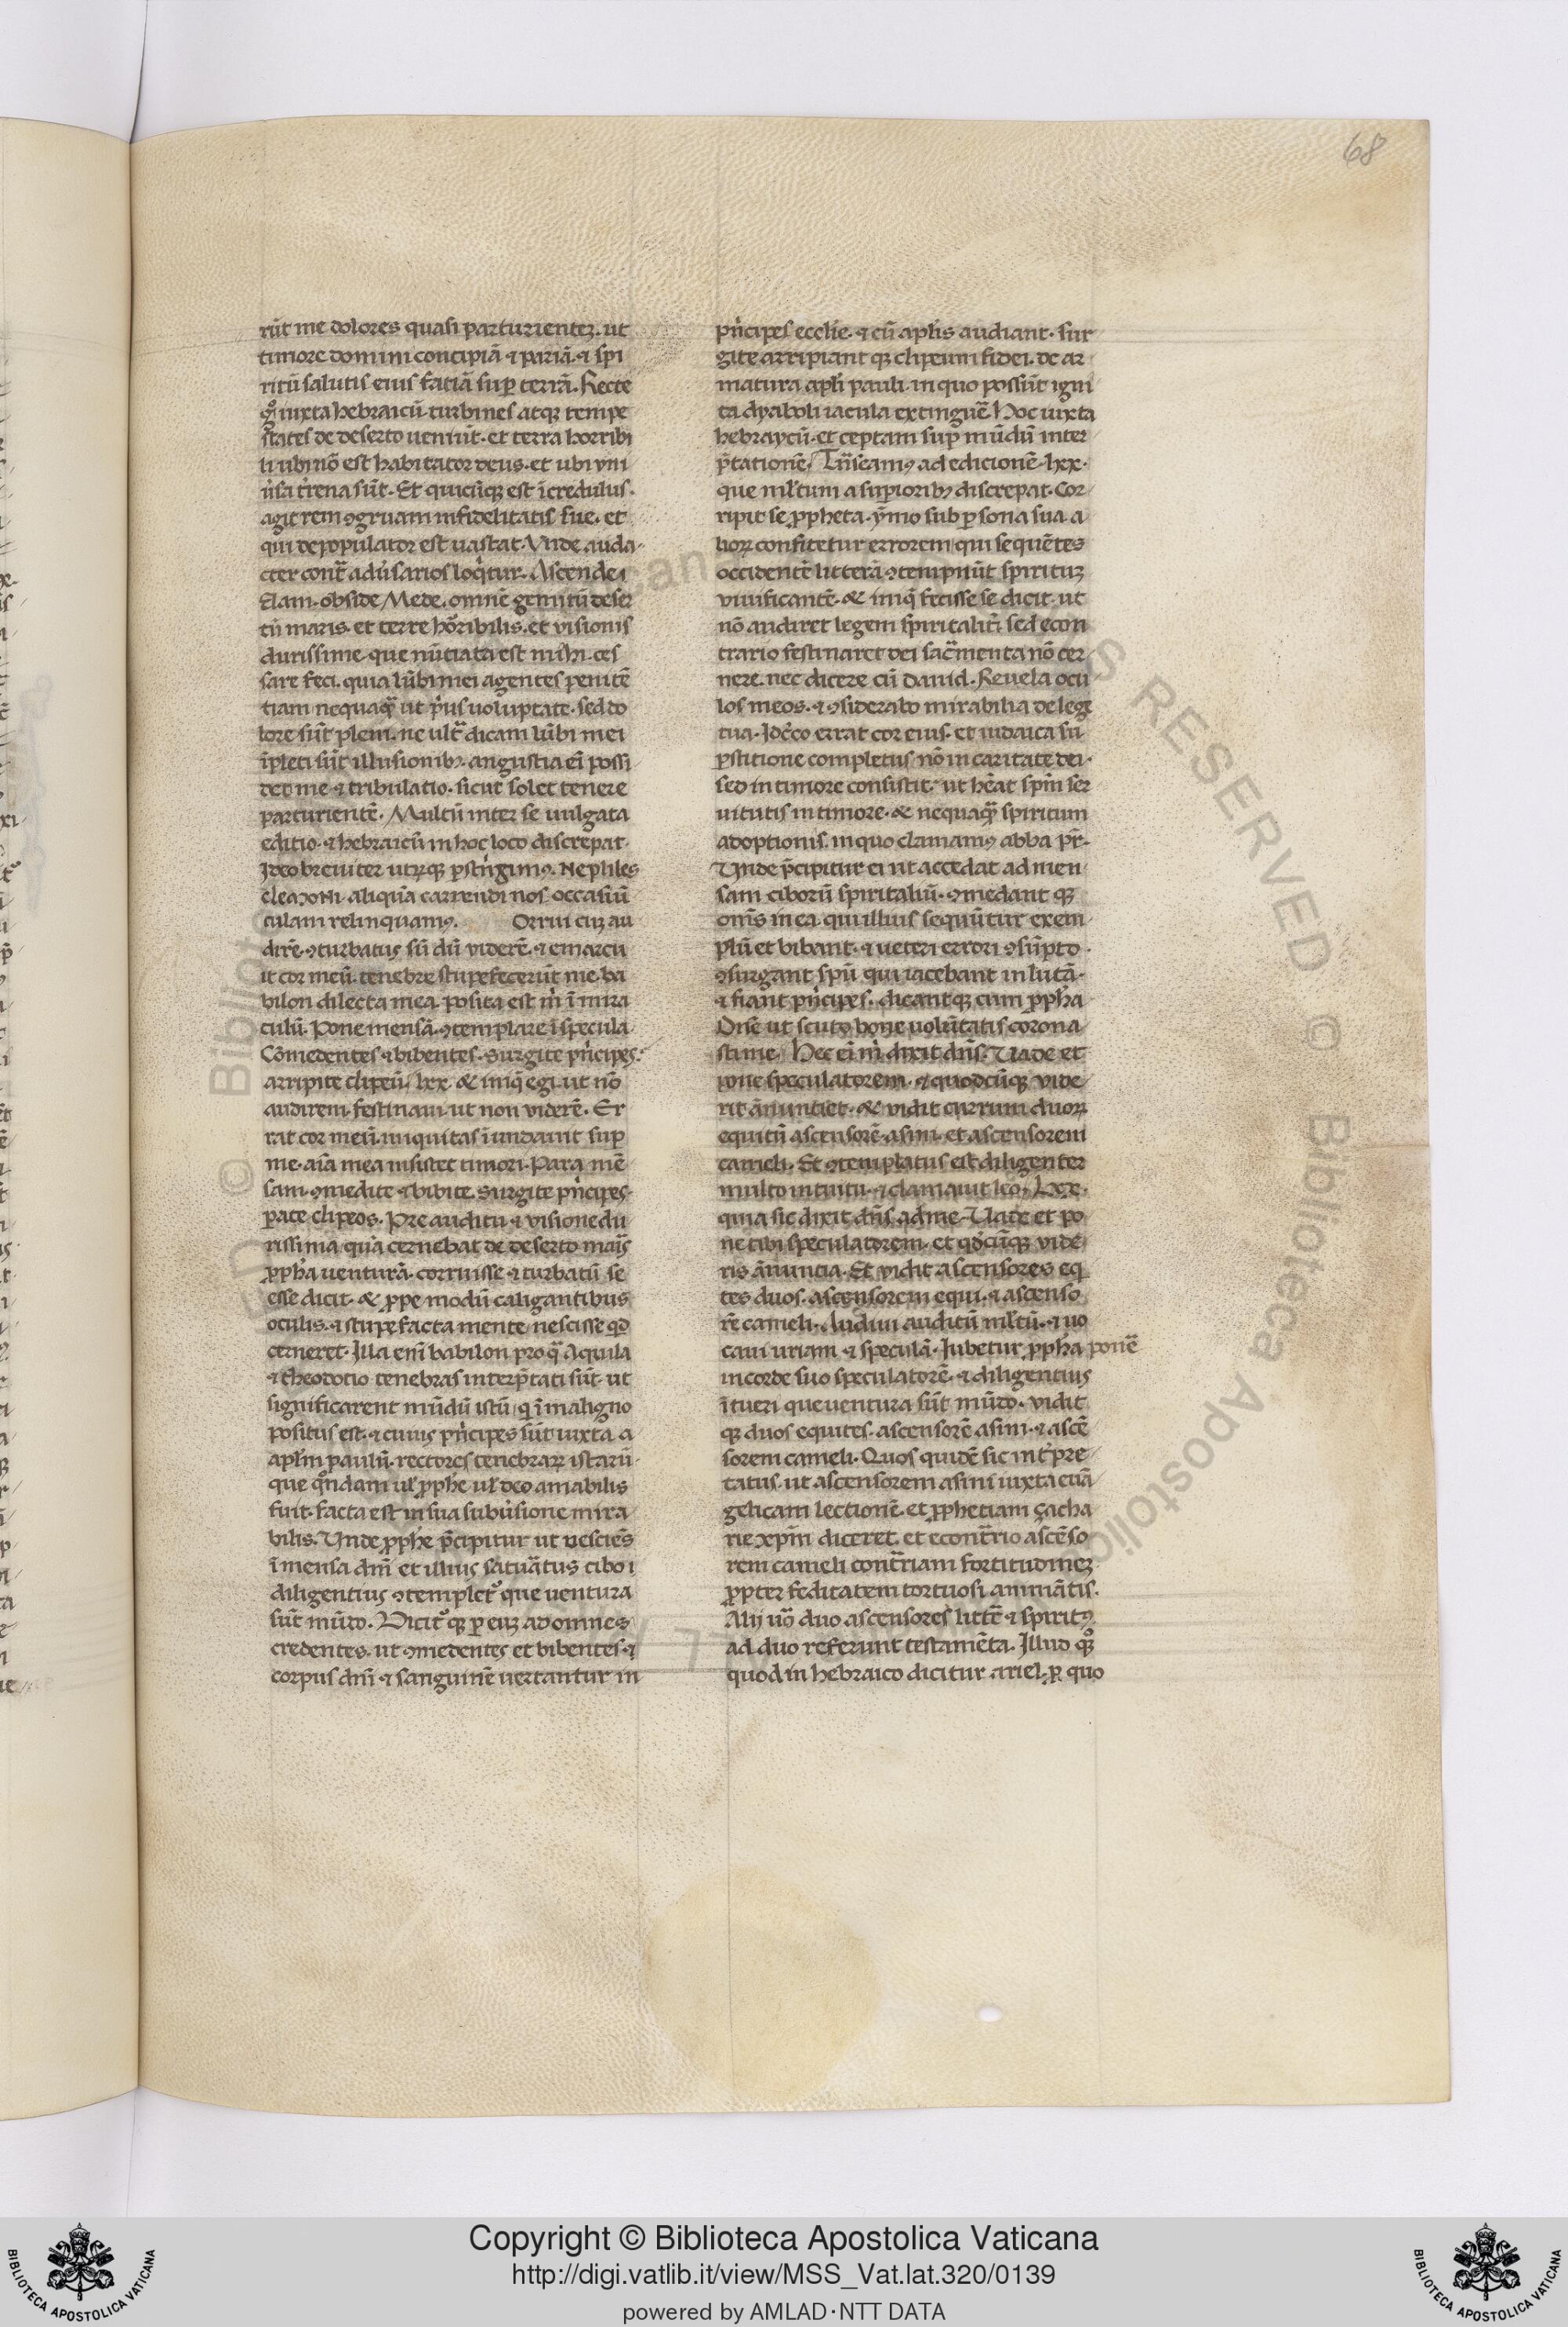 68
rūt me dolores quasi parturientez. ut
timore domini concipiā ⁊ pariā. ⁊ spi
ritū salutis eius fatiā sup terrā. Recte
gͦ iuxta hebraicū turbines atqꝫ tempe
states de deserto ueniūt. et terra horribi
li ubi nō est habitator deus. et ubi vni
ūsa t̄rena sūt. Et quicūqꝫ est īcredulus.
agit rem ꝯgruam infidelitatis sue. et
qui depopulator est uastat. Vnde auda
cter cont̄ adūsarios loqͥtur. Ascende
Elam. obside Mede. omnē gemitū deser
tū maris. et terre horribilis. et visionis
durissime que nūciata est mihi. ces
sare feci. quia lūbi mei agentes penitē
tiam nequaqᷓ ut p̄us uoluptate. sed do
lore sūt pleni. ne ultᷓ dicam lūbi mei
īpleti sūt illusionibꝫ. angustia eī possi
det me ⁊ tribulatio. sicut solet tenere
parturientē. Multū inter se uulgata
editio. ⁊ hebraicū in hoc loco discrepat.
Ideo breuiter utrūqꝫ pstrīgimꝰ. Ne philes
cleμoni aliquā carpendi nos occasiū
culam relinquamꝰ. Orrui cuꝫ au
dirē. ꝯturbatus sū dū viderē. ⁊ emarcu
it cor meū. tenebre stupefecerūt me. ba
bilon dilecta mea. posita est m̄ ī mira
culū. Pone mensā. ꝯtemplare ī specula
Cōmedentes ⁊ bibentes. surgite pͥncipes.
arripite clipeū. lxx. & iniqͥ egi. ut nō
audirem. festinaui ut non viderē. Er
rat cor meū. iniquitas īundauit sup
me. aīa mea insistet timori. Para mē
sam. ꝯmedite ⁊ bibite. surgite pͥncipes.
pate clipeos. Pre auditu ⁊ visione du
rissima quā cernebat de deserto maīs
ꝓpha venturā. corruisse ⁊ turbatū se
esse dicit. & ꝓpe modū caligantibus
oculis. ⁊ stupefacta mente nescisse qd
cerneret. Illa enī babilon pro qᷓ Aquila
⁊ theodotio tenebras interp̄tati sūt ut
significarent mūdū istū. qͥ ī maligno
positus est. ⁊ cuius pͥncipes sūt iuxta a
aplm̄ paulū. rectores tenebraꝝ istarū.
que qͦndam ul' ꝓphe ul' deo amabilis
fuit. facta est in sua subūsione mira
bilis. Unde ꝓphe p̄cipitur ut vesciēs
ī mensa dn̄i et illius satuᷓtus cibo
diligentius ꝯtemplet͛ que uentura
sūt mūdo. Dicit͛qꝫ p euꝫ ad omnes
credentes. ut ꝯmedentes et bibentes ⁊
corpus dn̄i ⁊ sanguinē vertantur in
pͥncipes ecclīe. ⁊ cū aplis audiant. sur
gite arripiant qꝫ clipeum fidei. de ar
matura apli pauli. in quo possūt igni
ta dyaboli iacula extinguē. Hoc iuxta
hebraycū. et ceptam sup mūdū inter
p̄tationē. Tn̄seamꝰ ad edicionē. lxx.
que ml'tum a supioribꝫ discrepat. Cor
ripit se ꝓpheta. ymo sub psona sua a
lioꝝ confitetur errorem. qui sequētes
occidentē litterā ꝯtempnūt spirituꝫ
viuificantē. & iniqͥ fecisse se dicit. ut
nō audiret legem spiritalit͛. sed econ
trario festinaret dei sacᷓmenta nō cer
nere. nec dicere cū dauid. Reuela ocu
los meos. ⁊ ꝯsiderabo mirabilia de lege
tua. Idc̄o errat cor eius. et iudaica su
pstitione completus nō in caritate dei.
sed in timore consistit. ut heāt spm̄ ser
uitutis in timore. & nequaqᷓ spiritum
adoptionis. in quo clamamꝰ abba pr̄.
Unde p̄cipitur ei ut accedat ad men
sam ciborū spiritaliū. ꝯmedant qꝫ
omīs in ea. qui illius sequūtur exem
plū et bibant. ⁊ ueteri errori ꝯsūpto
ꝯsurgant spū qui iacebant in lutā.
⁊ fiant pͥncipes. dicantqꝫ cum ꝓpha
Dn̄e ut scuto bone uolūtatis corona
sti me. Hec eī m̄ dixit dn̄s. Uade et
pone speculatorem. ⁊ quodcūqꝫ vide
rit ānuntiet. & vidit currum duoꝝ
equitū ascensorē asini. et ascensorem
cameli. Et ꝯtemplatus est diligenter
multo intuitu. ⁊ clamauit leo. Lxx.
quia sic dixit dn̄s ad me. Uade et po
ne tibi speculatorem. et qdcūqꝫ vide
ris ānuncia. Et vidit ascensores eqͥ
tes duos. ascensorem equi. ⁊ ascenso
rē cameli. Audiui auditū ml'tū. ⁊ uo
caui uriam ⁊ speculā. Iubetur ꝓpha ponē
in corde suo speculatorē. ⁊ diligentius
ītueri que uentura sūt mūdo. vidit
qꝫ duos equites. ascensorē asini. ⁊ ascē
sorem cameli. Quos quidē sic int͛pre
tatus. ut ascensorem asini iuxta euā
gelicam lectionē. et ꝓphetiam çacha
rie xp̄m diceret. et econtᷓrio ascēso
rem cameli contᷓriam fortitudineꝫ
ꝓpter feditatem tortuosi animātis.
Alij uͦ duo ascensores litt̄e ⁊ spiritꝰ
ad duo referunt testamēta. Illud qꝫ
quod in hebraico dicitur ariel. p quo
Copyright © Biblioteca Apostolica Vaticana
http://digi.vatlib.it/view/MSS_Vat.lat.320/0139
powered by AMLAD·NTT DATA
BIBLIOTECA APOSTOLICA VATICANA
BIBLIOTECA APOSTOLICA VATICANA